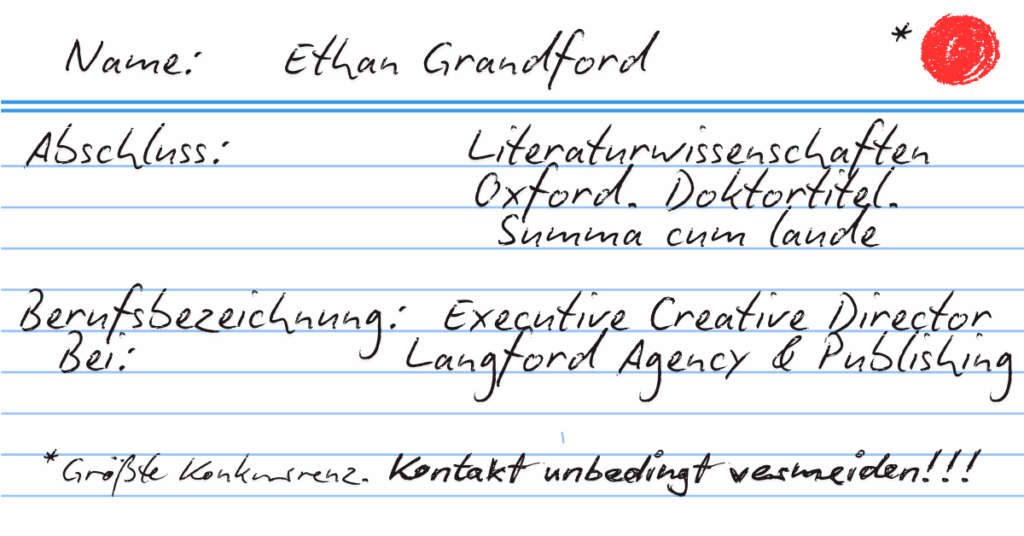 Name: Ethan Grandford *
Abschluss: Literaturwissenschaften
Oxford. Doktortitel.
Summa cum laude
Berufsbezeichnung: Executive Creative Director
Bei: Langford Agency & Publishing
*Größte Konkurrenz. Kontakt unbedingt vermeiden!!!